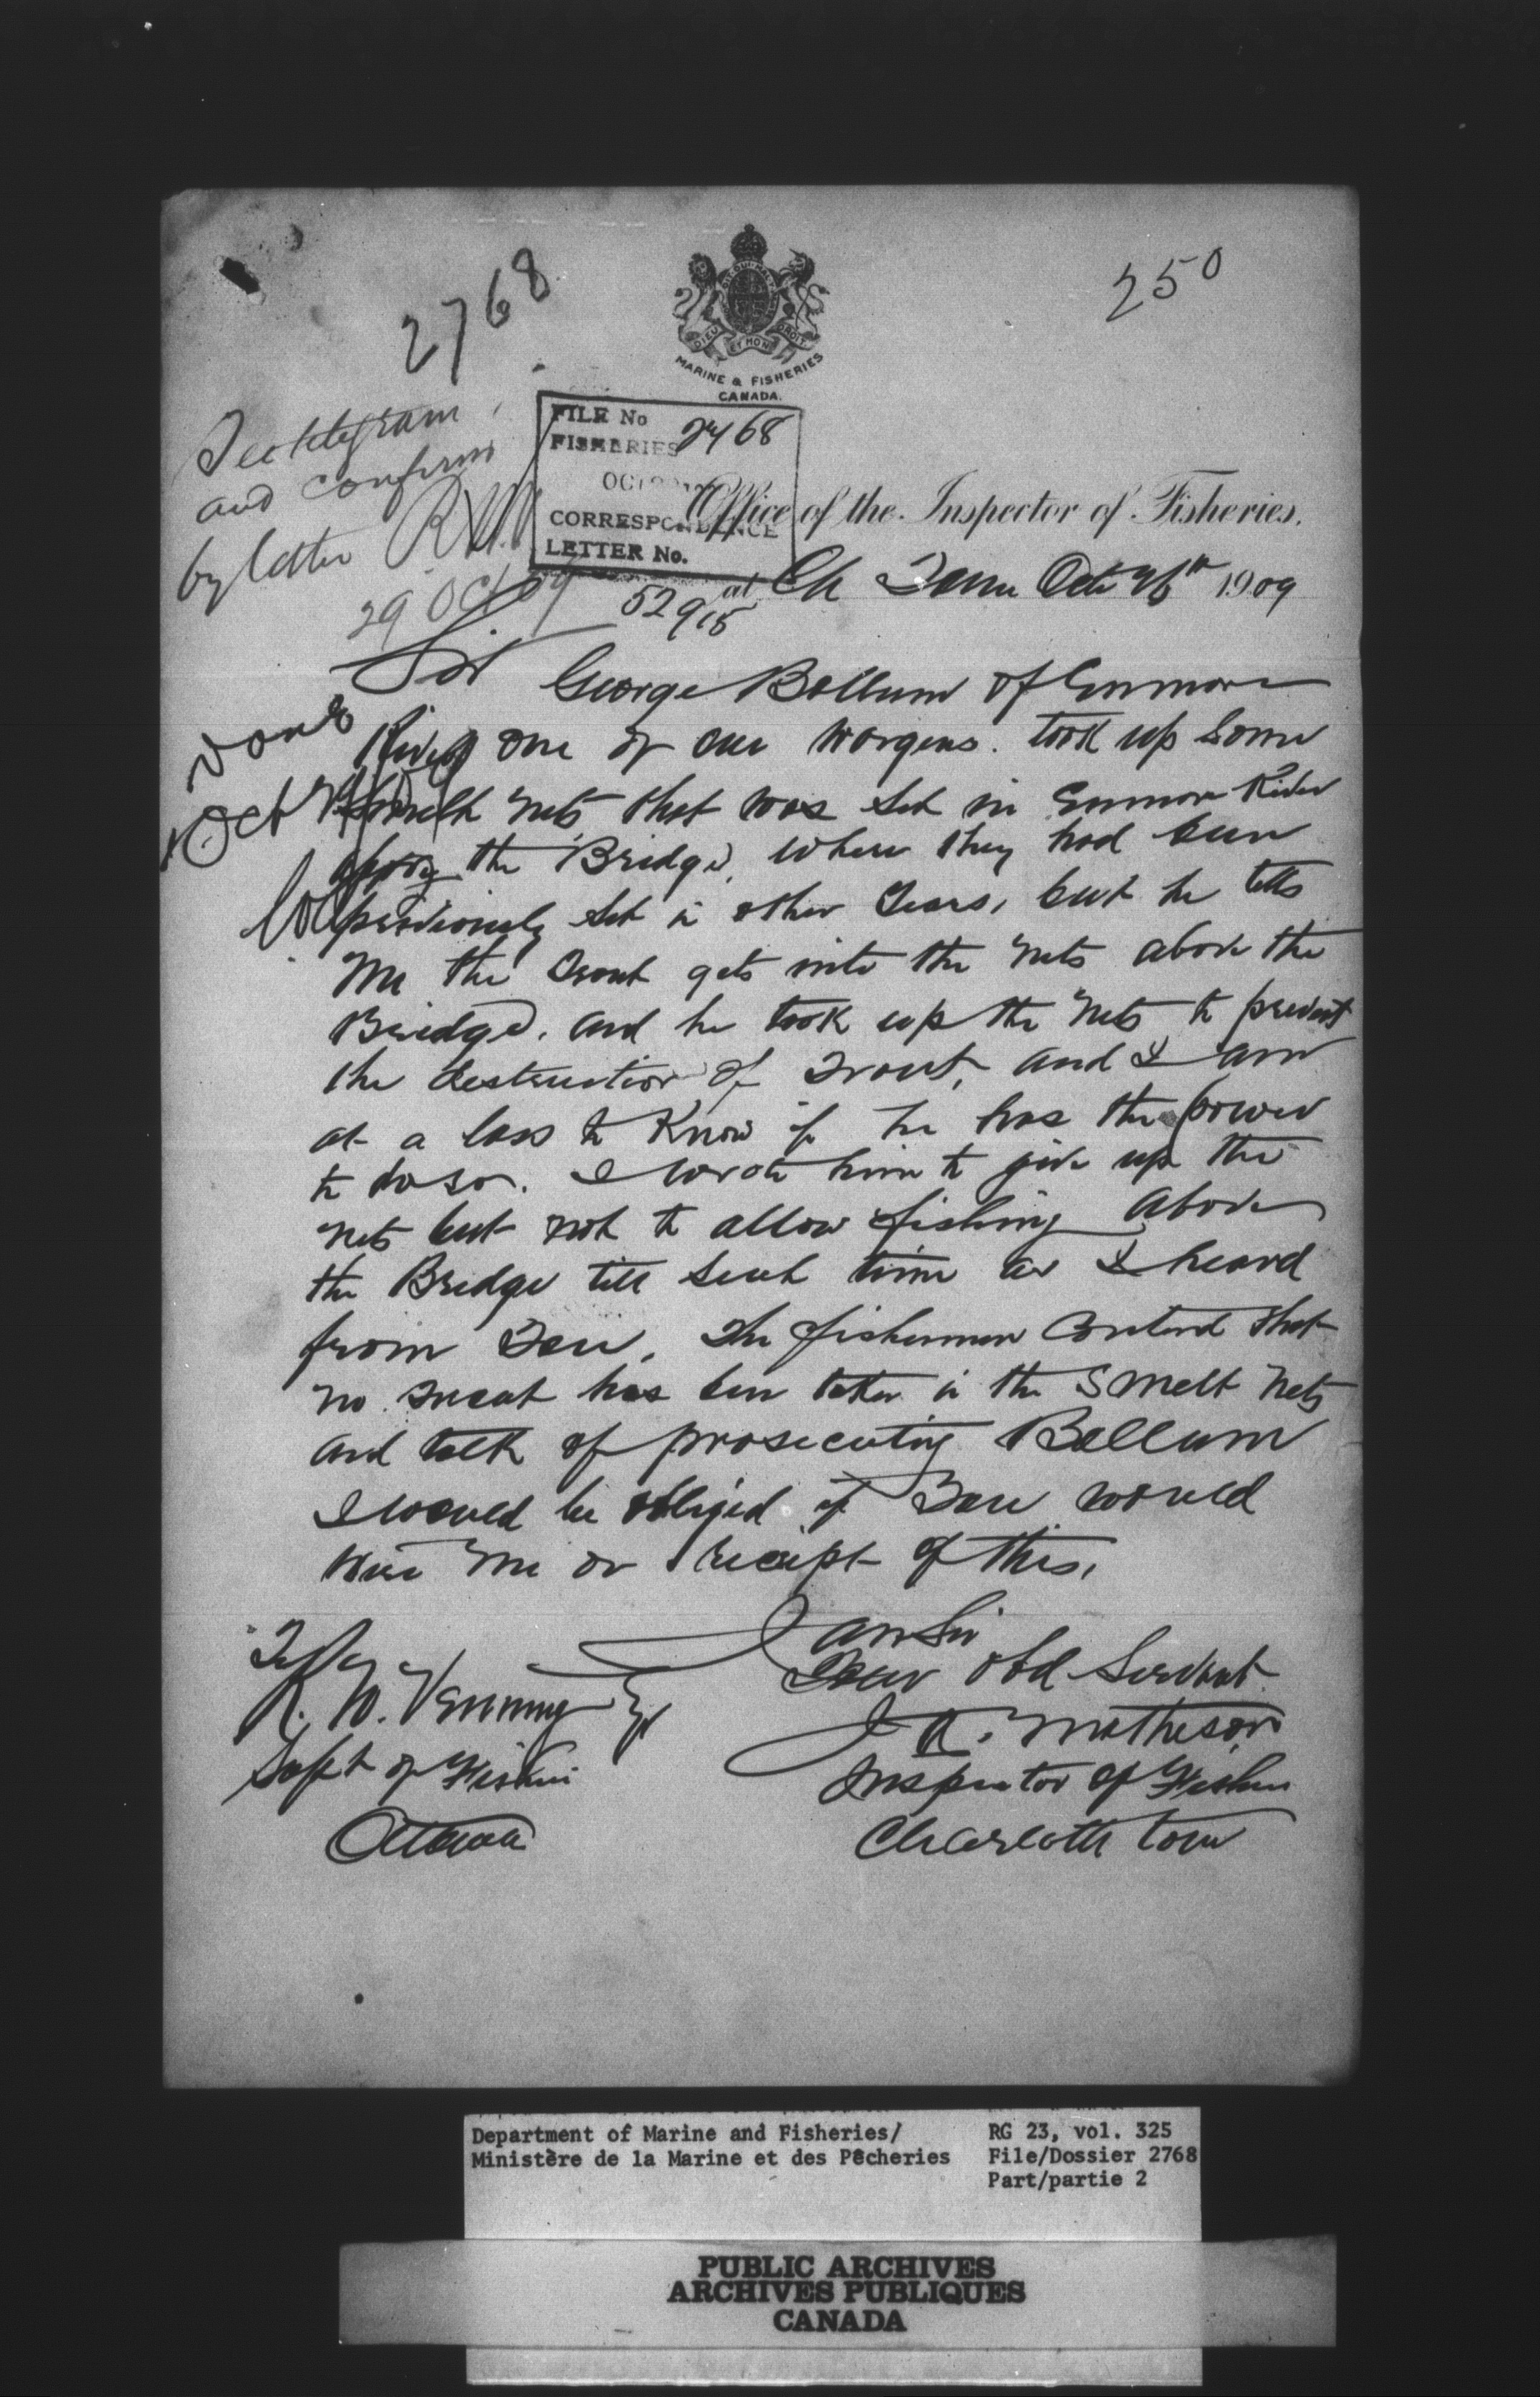 2768
250
DIEU ET MON DROIT
MARINE & FISHERIES
CANADA.
FILE No
FISHERIES 2768
OCT
CORRESPONDENCE
LETTER No.
52915
See telegram
and confirm
by letter RNV
29 Oct 09
Office of the Inspector of Fisheries,
at Ch Town Oct 26th 1909
Sir
done
Oct
George Bollum of Enmore
River one of our Wargens. took up Some
Smelt nets that was Set in Enmore River
above the Bridge, where they had been
previously Set in other Years, but he tells
Me the Trout gets into the nets above the
Bridge, and he took up the nets to prevent
the destruction of Trout, and I am
at a loss to Know if he has the power
to do so. I wrote him to give up the
nets but not to allow fishing above
the Bridge till Such time as I heard
from You. The fishermen Contend that
no Trout has been taken in the Smelt Nets
and talk of prosecuting Bollum
I would be obliged if You would
Wire Me on receipt of this,
I am Sir
Your obd Servant
J A. Matheson
Inspector of Fisheries
Charlotte town
To
R. N. Venning Esq
Supt of Fisheries
Ottawa
Department of Marine and Fisheries/
Ministère de la Marine et des Pêcheries
RG 23, vol. 325
File/Dossier 2768
Part/partie 2
PUBLIC ARCHIVES
ARCHIVES PUBLIQUES
CANADA